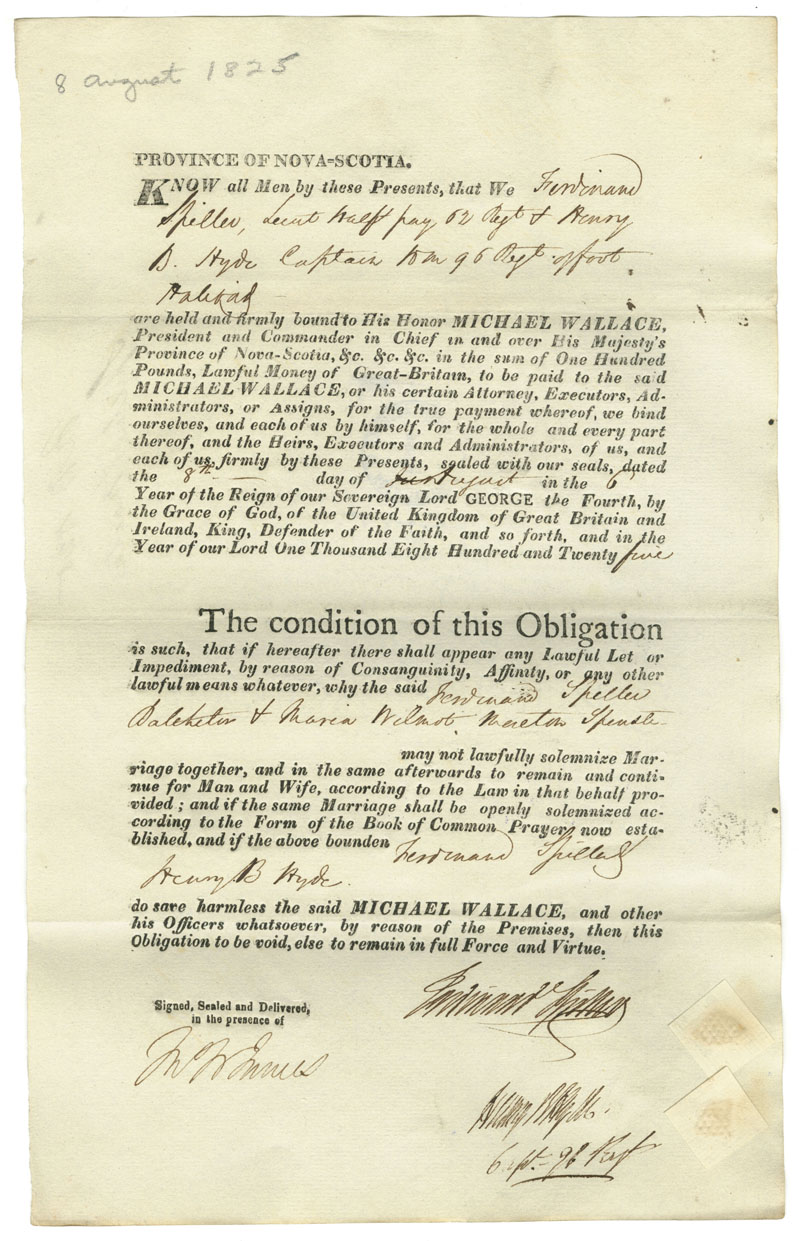 8 August 1825
PROVINCE OF NOVA-SCOTIA.
KNOW all Men by these Presents, that We Ferdinand
Speller, Lieut Half pay 62 Regt & Henry
B. Hyde Captain 96 Regt of foot
Halifax
are held and firmly bound to His Honor MICHAEL WALLACE,
President and Commander in Chief in and over His Majesty's
Province of Nova-Scotia, &c. &c. &c. in the sum of One Hundred
Pounds, Lawful Money of Great-Britain, to be paid to the said
MICHAEL WALLACE, or his certain Attorney, Executors, Ad-
ministrators, or Assigns, for the true payment whereof, we bind
ourselves, and each of us by himself, for the whole and every part
thereof, and the Heirs, Executors and Administrators, of us, and
each of us, firmly by these Presents, sealed with our seals, dated
the 8th day of August in the 6
Year of the Reign of our Sovereign Lord GEORGE the Fourth, by
the Grace of God, of the United Kingdom of Great Britain and
Ireland, King, Defender of the Faith, and so forth, and in the
Year of our Lord One Thousand Eight Hundred and Twenty five
The condition of this Obligation
is such, that if hereafter there shall appear any Lawful Let or
Impediment, by reason of Consanguinity, Affinity, or any other
lawful means whatever, why the said Ferdinand Speller
Batchelor & Maria Wilmot Spinster
may not lawfully solemnize Mar-
riage together, and in the same afterwards to remain and conti-
nue for Man and Wife, according to the Law in that behalf pro-
vided; and if the same Marriage shall be openly solemnized ac-
cording to the Form of the Book of Common Prayer now esta-
blished, and if the above bounden Ferdinand Speller &
Henry B Hyde.
do save harmless the said MICHAEL WALLACE, and other
his Officers whatsoever, by reason of the Premises, then this
Obligation to be void, else to remain in full Force and Virtue.
Signed, Sealed and Delivered,
in the presence of
Ferdinand Speller
Henry B Hyde.
Capt 96 Regt